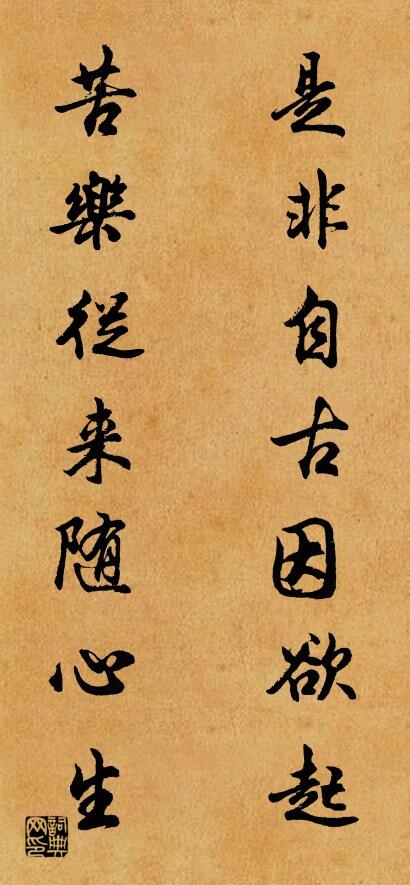 是非自古因欲起
苦樂從来随心生
詞典网印